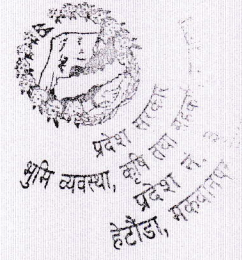 प्रदेश सरकार
भूमि व्यवस्था, कृषि तथा सहकारी
प्रदेश नं. ३
हेटौंडा, मकवानपुर